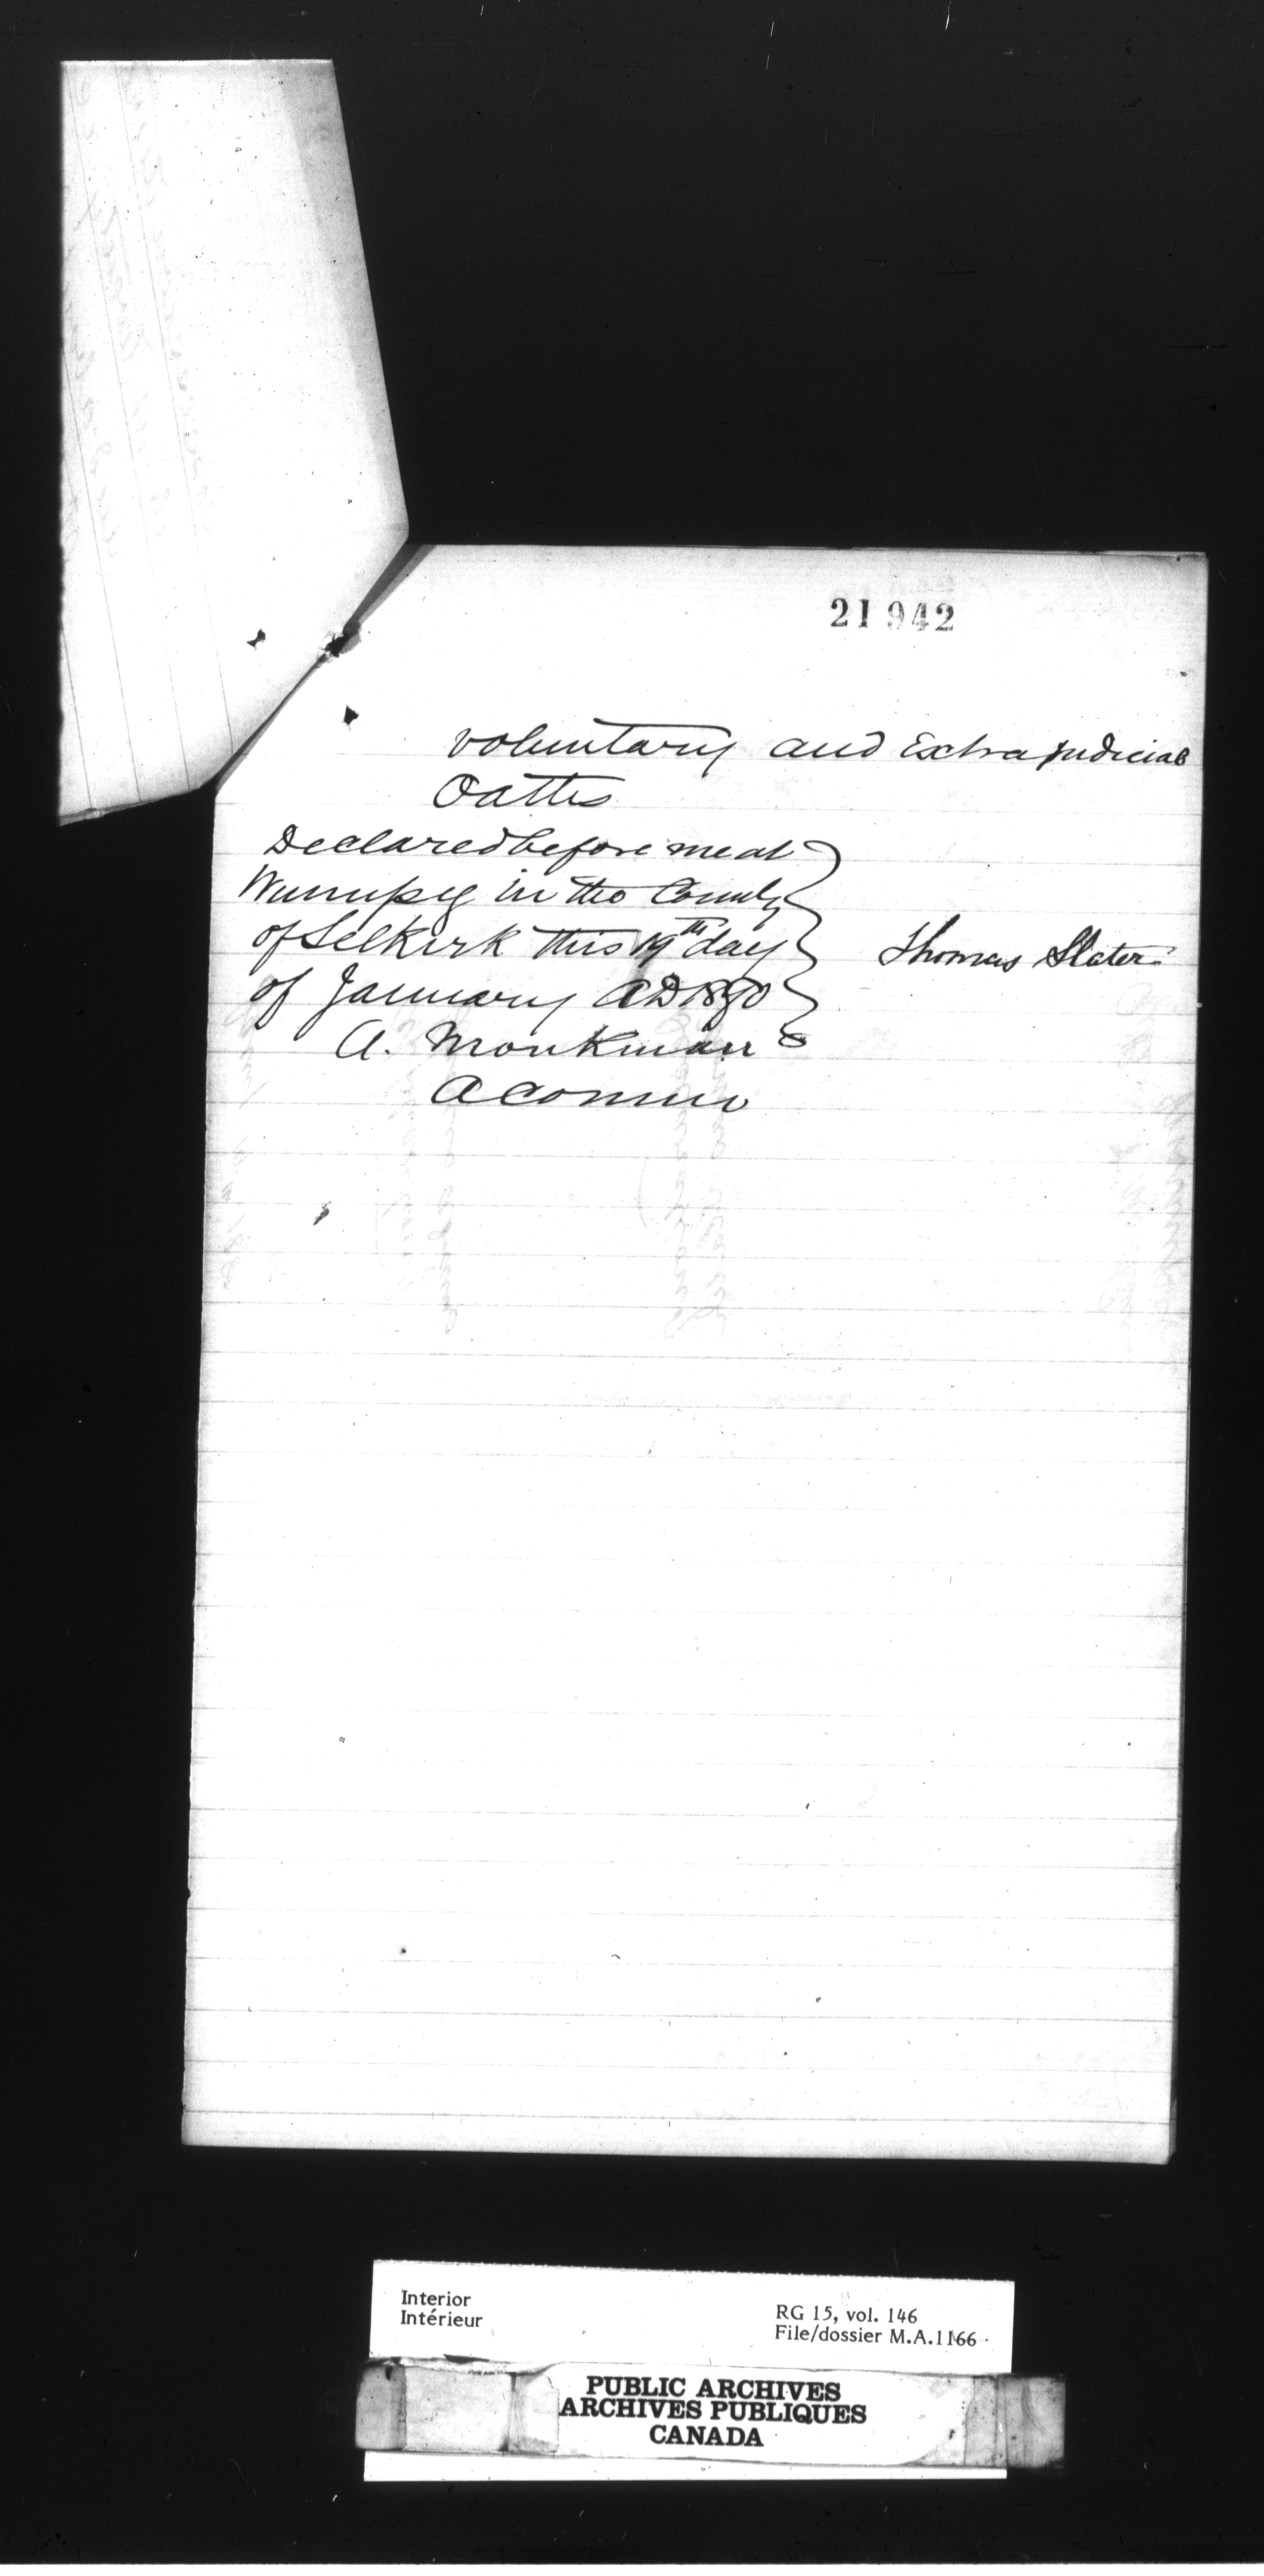 21942
voluntary and Extra judicial
Oaths
Declared before me at
Winnipeg in the County
of Selkirk this 19th day
of January AD 1880
Thomas Slater
A. Monkman
A Comr
Interior
Intérieur
RG 15, vol. 146
File/dossier M.A.1166
PUBLIC ARCHIVES
ARCHIVES PUBLIQUES
CANADA